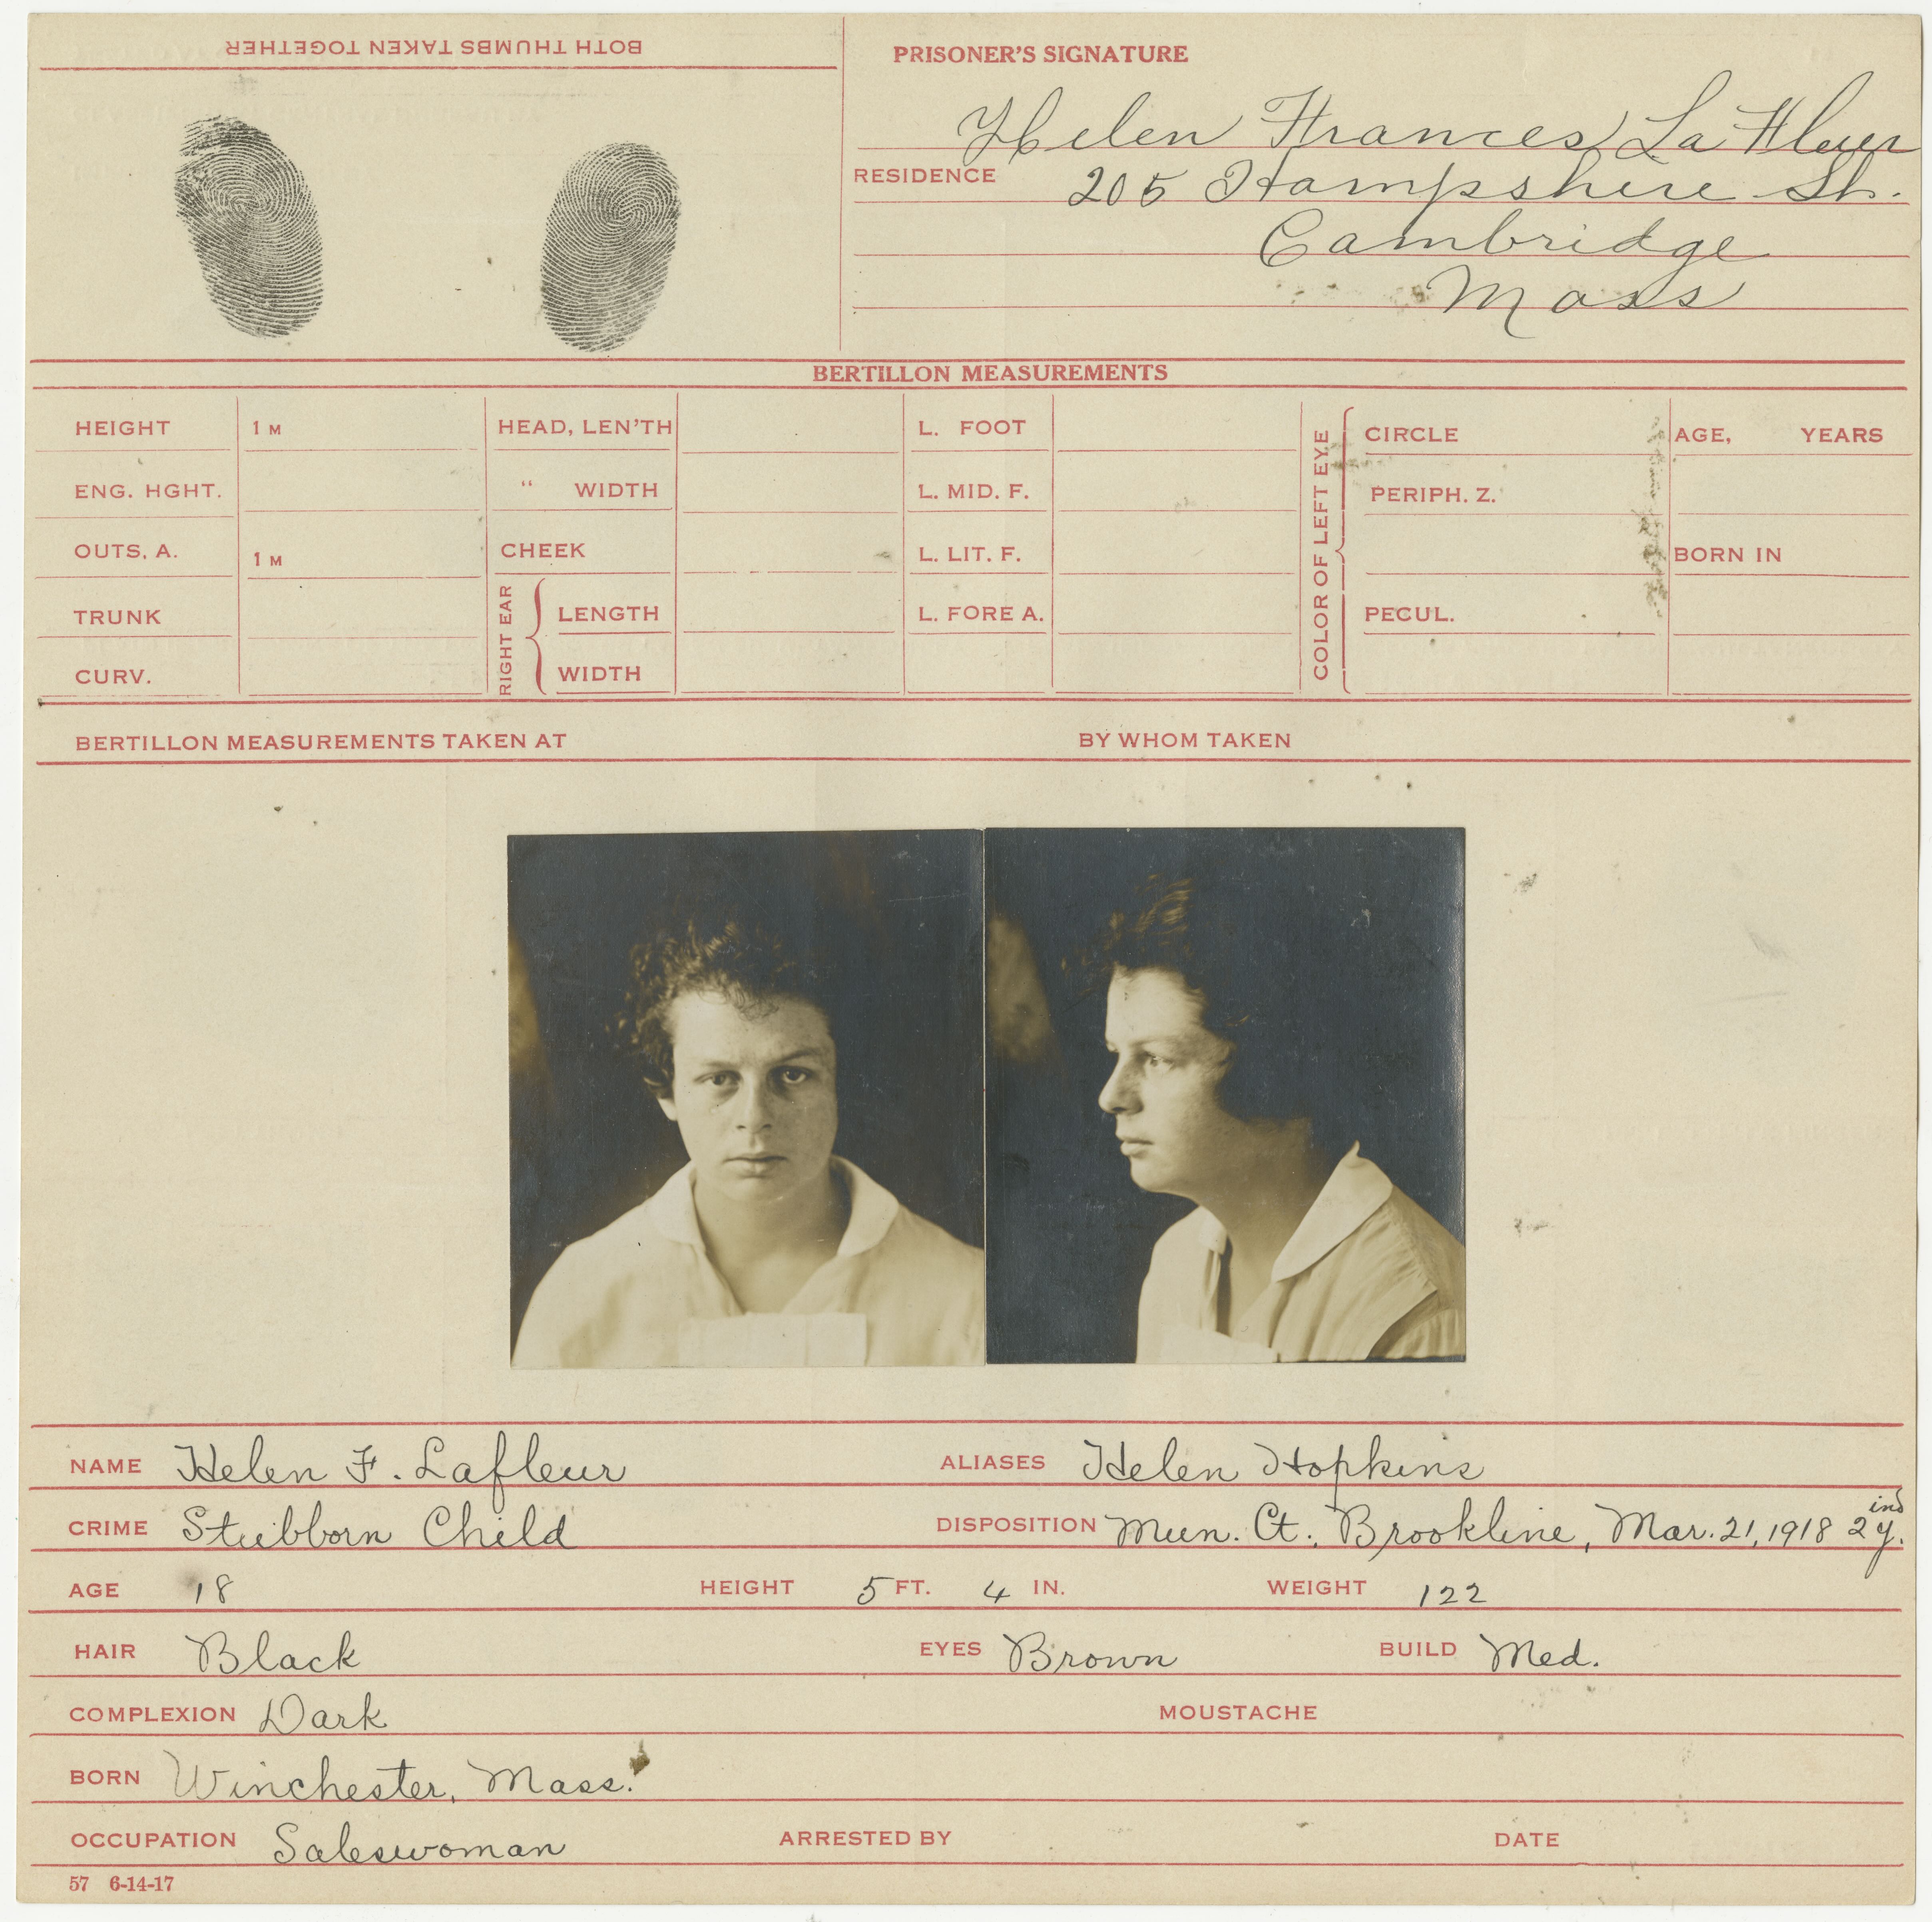 BOTH THUMBS TAKEN TOGETHER
PRISONER'S SIGNATURE
Helen Frances La Fleur
RESIDENCE 205 Hampshire St.
Cambridge
Mass
BERTILLON MEASUREMENTS
HEIGHT 1 M HEAD, LEN'TH L. FOOT CIRCLE AGE, YEARS
ENG. HGHT. " WIDTH L. MID. F. PERIPH. Z.
OUTS, A. 1 M CHEEK L. LIT. F. BORN IN
TRUNK LENGTH L. FORE A. PECUL.
CURV. WIDTH
RIGHT EAR
COLOR OF LEFT EYE
BERTILLON MEASUREMENTS TAKEN AT BY WHOM TAKEN
NAME Helen F. Lafleur ALIASES Helen Hopkins
CRIME Stubborn Child DISPOSITION Mun. Ct. Brookline, Mar. 21, 1918 2 y. ind
AGE 18 HEIGHT 5 FT. 4 IN. WEIGHT 122
HAIR Black EYES Brown BUILD Med.
COMPLEXION Dark MOUSTACHE
BORN Winchester, Mass.
OCCUPATION Saleswoman ARRESTED BY DATE
57 6-14-17